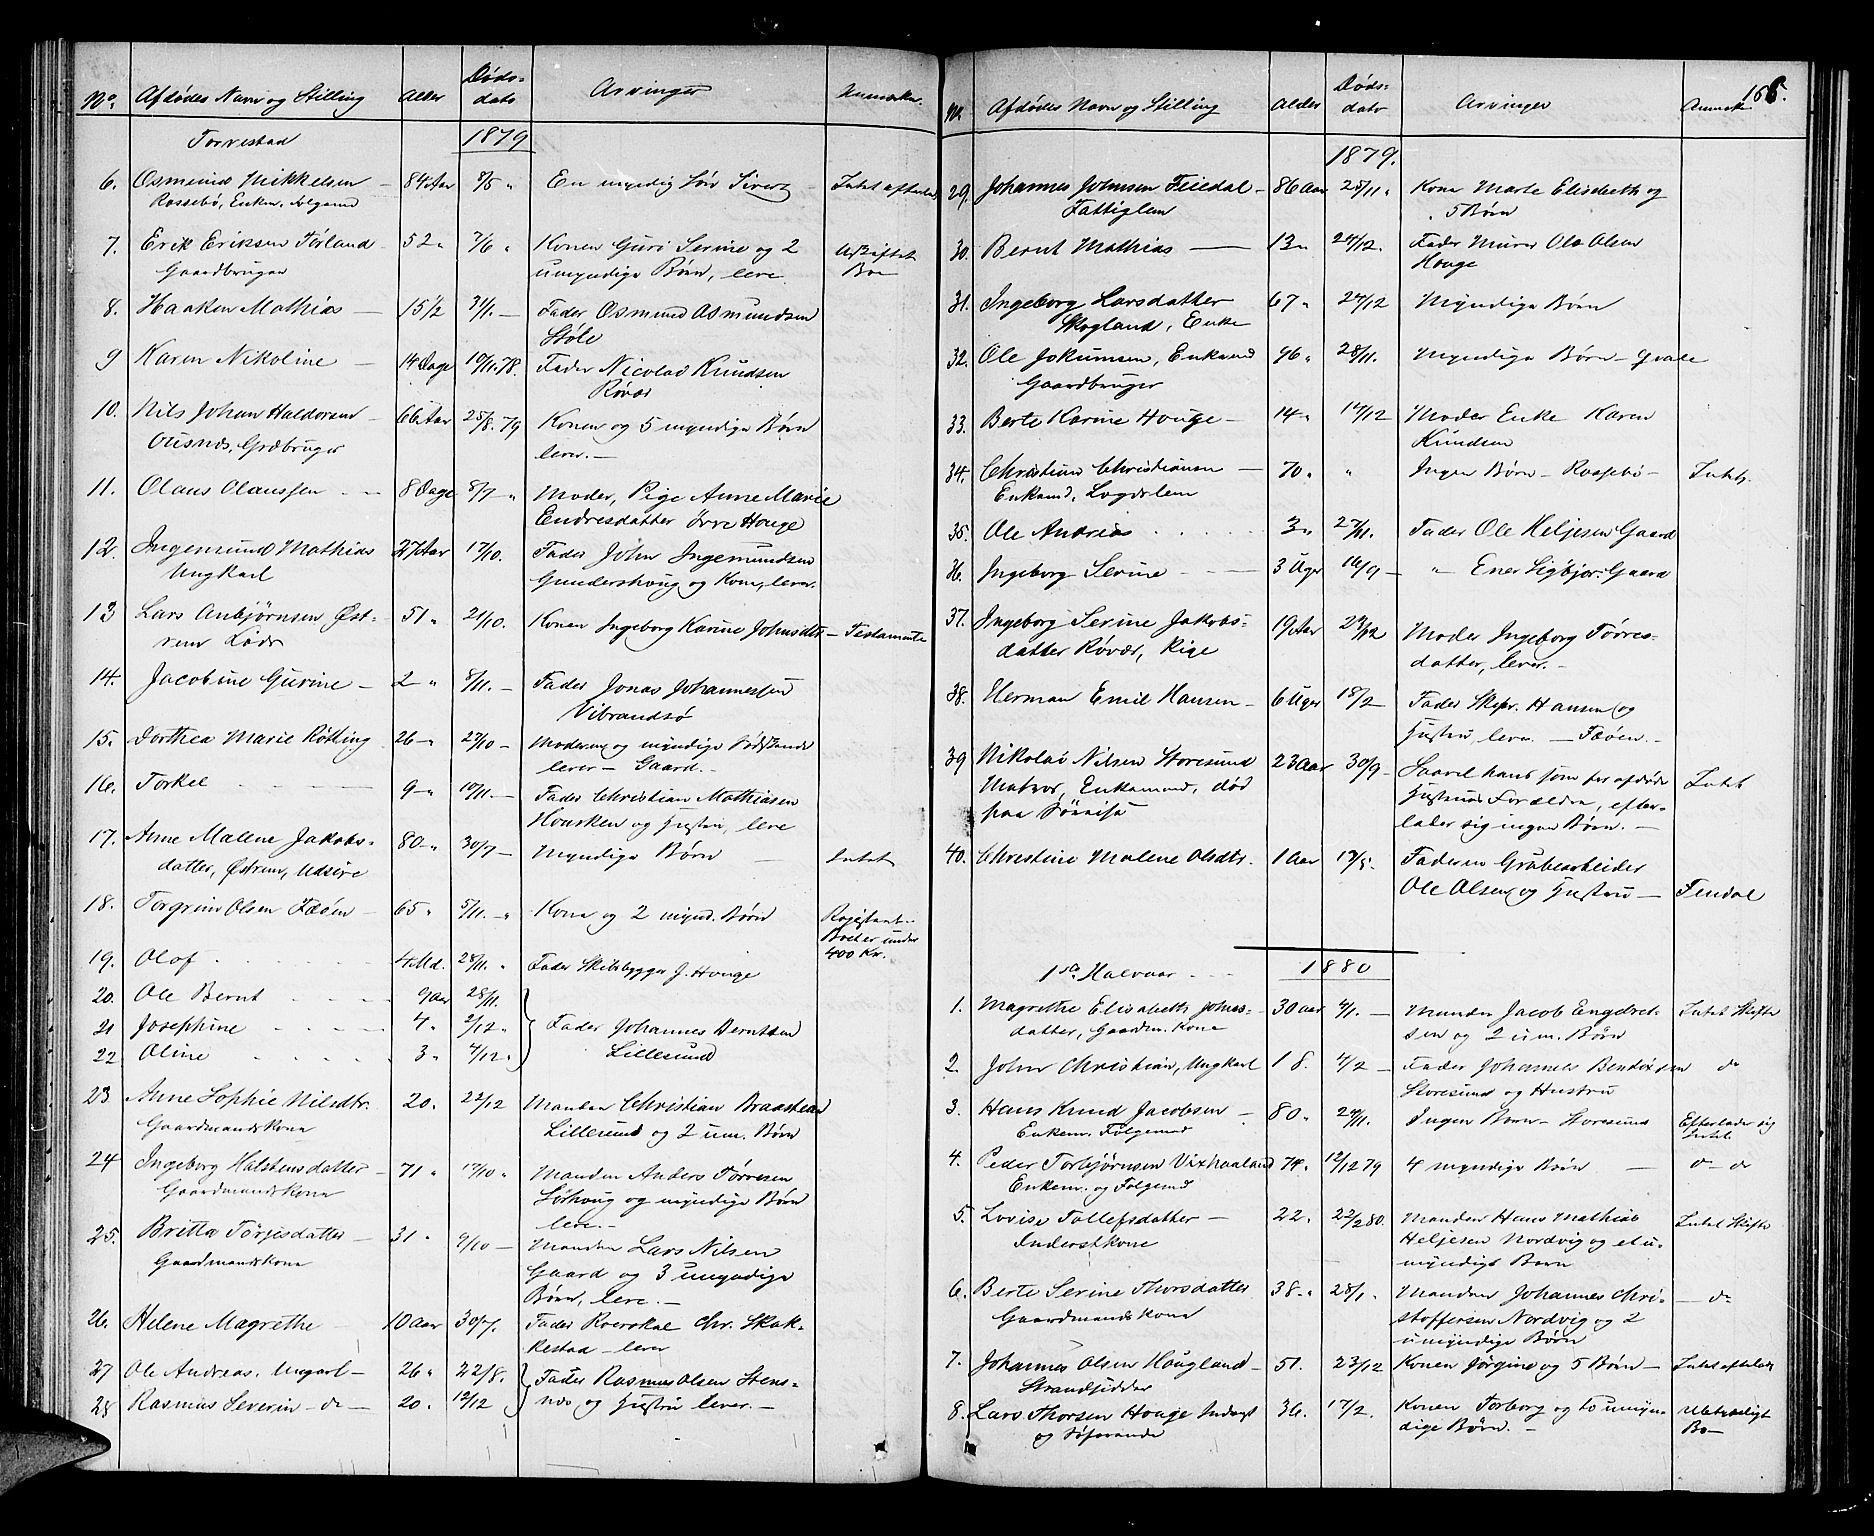 No. Afdødes Navn og Stilling Alder Døds-
dato Arvinger Anmærkn.
Torvestad 1879
6. Osmund Mikkelsen 84 Aar 8/5 " En myndig Søn Sivert Intet efterladt
Rossebø, Enkem. Følgemd
7. Erik Eriksen Førland 52 " 7/6 " Konen Guri Serine og 2 Uskiftet
Gaardbruger umyndige Børn, leve Bo
8. Haaken Mathias 15 1/2 3/11. Fader Osmund Osmundsen
Støle
9 Karen Nikoline 14 Dage 10/11.78. Fader Nicolai Knudsen
Røvær
10. Nils Johan Haldorsen 66 Aar 25/8.79 Konen og 5 myndige Børn
Ousnes, Grdbruger lever.
11. Olaus Olaussen 8 Dage 8/7 " Moder, Pige Anne Marie
Endresdatter Øvre Houge
12. Ingemund Mathias 27 Aar 17/10. Fader John Ingemundsen
Ungkarl Gundershoug og Kone, lever.
13 Lars Anbjørnsen Øst- 51 " 21/10. Konen Ingeborg Karine Johnsdtr Testamente
rem Lods
14. Jacobine Gurine 2 " 8/11. Fader Jonas Johannessen
Vibrandsø
15. Dorthea Marie Røtting 26 27/10 Moderen og myndige Sødskende
lever - Gaard.
16. Torkel 9 10/11. Fader Christian Mathiasen
Hovrken og Hustru, leve
17. Anne Malene Jakobs- 80 30/7 Myndige Børn Intet
datter, Østrem, Udsire
18. Torgrim Olsen Feøen 65 " 5/11. " Kone og 2 mynd. Børn Registrant
Boet er under
400 Kr.
19. Olof 4 Md. 28/11. " Fader Skibsbygger J. Houge
20. Ole Bernt 9 Aar 28/11.
21 Josephine 4 " 2/12 " Fader Johannes Berntsen
22 Oline 3 " 4/12 " Lillesund
23 Anne Sophie Nilsdtr. 20 " 22/12 Manden Christian Braastead
Gaardmandskone Lillesund og 2 um. Børn
24 Ingeborg Halstensdatter 71 " 17/10 " Manden Anders Tørresen
Gaardmandskone Sørhoug og myndige Børn
leve.
25. Britta Tørjesdatter 31 " 9/10 Manden Lars Nilsen
Gaardmandskone Gaard og 3 umyndige
Børn, leve.
26. Helene Magrethe 10 Aar 30/7. Fader Roerskal Chr. Skak-
kestad lever
27 Ole Andreas, Ungarl 26 " 22/8. Fader Rasmus Olsen Stens-
28 Rasmus Severin do 20. 12/12 nes og Hustru lever.
166.
No. Afdødes Navn og Stilling Alder Døds-
dato Arvinger Anmærk.
1879.
29. Johannes Johnsen Feiedal 86 Aar 25/11. " Kone Marte Elisabeth og
Fattiglem 5 Børn
30. Bernt Mathias 13 " 24/12. Fader Murer Ole Olsen
Houge
31. Ingeborg Larsdatter 67 " 27/12 Myndige Børn
Skogland, Enke
32. Ole Jokumsen, Enkemd 96 " 28/11. Myndige Børn
Gaardbruger
33. Berte Karine Houge 14 " 17/12 Moder Enke Karen
Knudsen
34. Christian Christiansen 70 " " Ingen Børn - Rossebø Intet.
Enkemd, Lægdslem
35. Ole Andreas 3 " 27/11. Fader Ole Heljesen Gaard
36. Ingeborg Serine 3 Uger 16/9 " Ener Sigbjør. Gaard
37. Ingeborg Serine Jakobs- 19 Aar 23/12 Moder Ingeborg Tørres-
datter Røvær, Pige datter, lever.
38. Herman Emil Hansen 6 Uger 18/2 Fader Skipr. Hansen og
Hustru, leve - Feøen.
39 Nikolai Nilsen Storesund 23 Aar 30/9 Saavel hans som før afdøde
Matros, Enkemand, død Hustrus Forældre, efter- Intet
paa Sønreise lader sig ingen Børn.
40. Christine Malene Olsdtr. 1 Aar 19/5. Faderen Grubearbeider
Ole Olsen og Hustru - Feudal
1ste Halvaar 1880
1. Magrethe Elisabeth Johns- 30 Aar 4/1. Manden Jacob Engebret- Intet Skifte
datter, Gaardm. Kone sen og 2 um. Børn
2. John Christian, Ungkarl 18. 4/2 Fader Johannes Bendixsen do
Storesund og Hustru
3. Hans Knud Jacobsen 80 " 24/1. Ingen Børn - Storesund Efterlader sig
Enkem. Følgemd Intet
4. Peder Torbjørnsen Vixhaaland 74 " 12/12 79 4 myndige Børn do do
Enkem. og Følgemd
5. Lovise Tollefsdatter 22. 22/2 80. Manden Hans Mathias Intet Skifte
Inderstkone Heljesen Nordvig og et u-
myndigt Barn
6. Berte Serine Thorsdatter 38 " 28/1. Manden Johannes Chri- do
Gaardmandskone stoffersen Nordvig og 2
umyndige Børn
7. Johannes Olsen Haugland 51. 23/12 Konen Jørgine og 5 Børn Intet efterladt
Strandsidder
8. Lars Thorsen Houge Inderst 36. 17/2. Konen Torborg og to umyn- Ubetydeligt
og Søfarende dige Børn. Bo